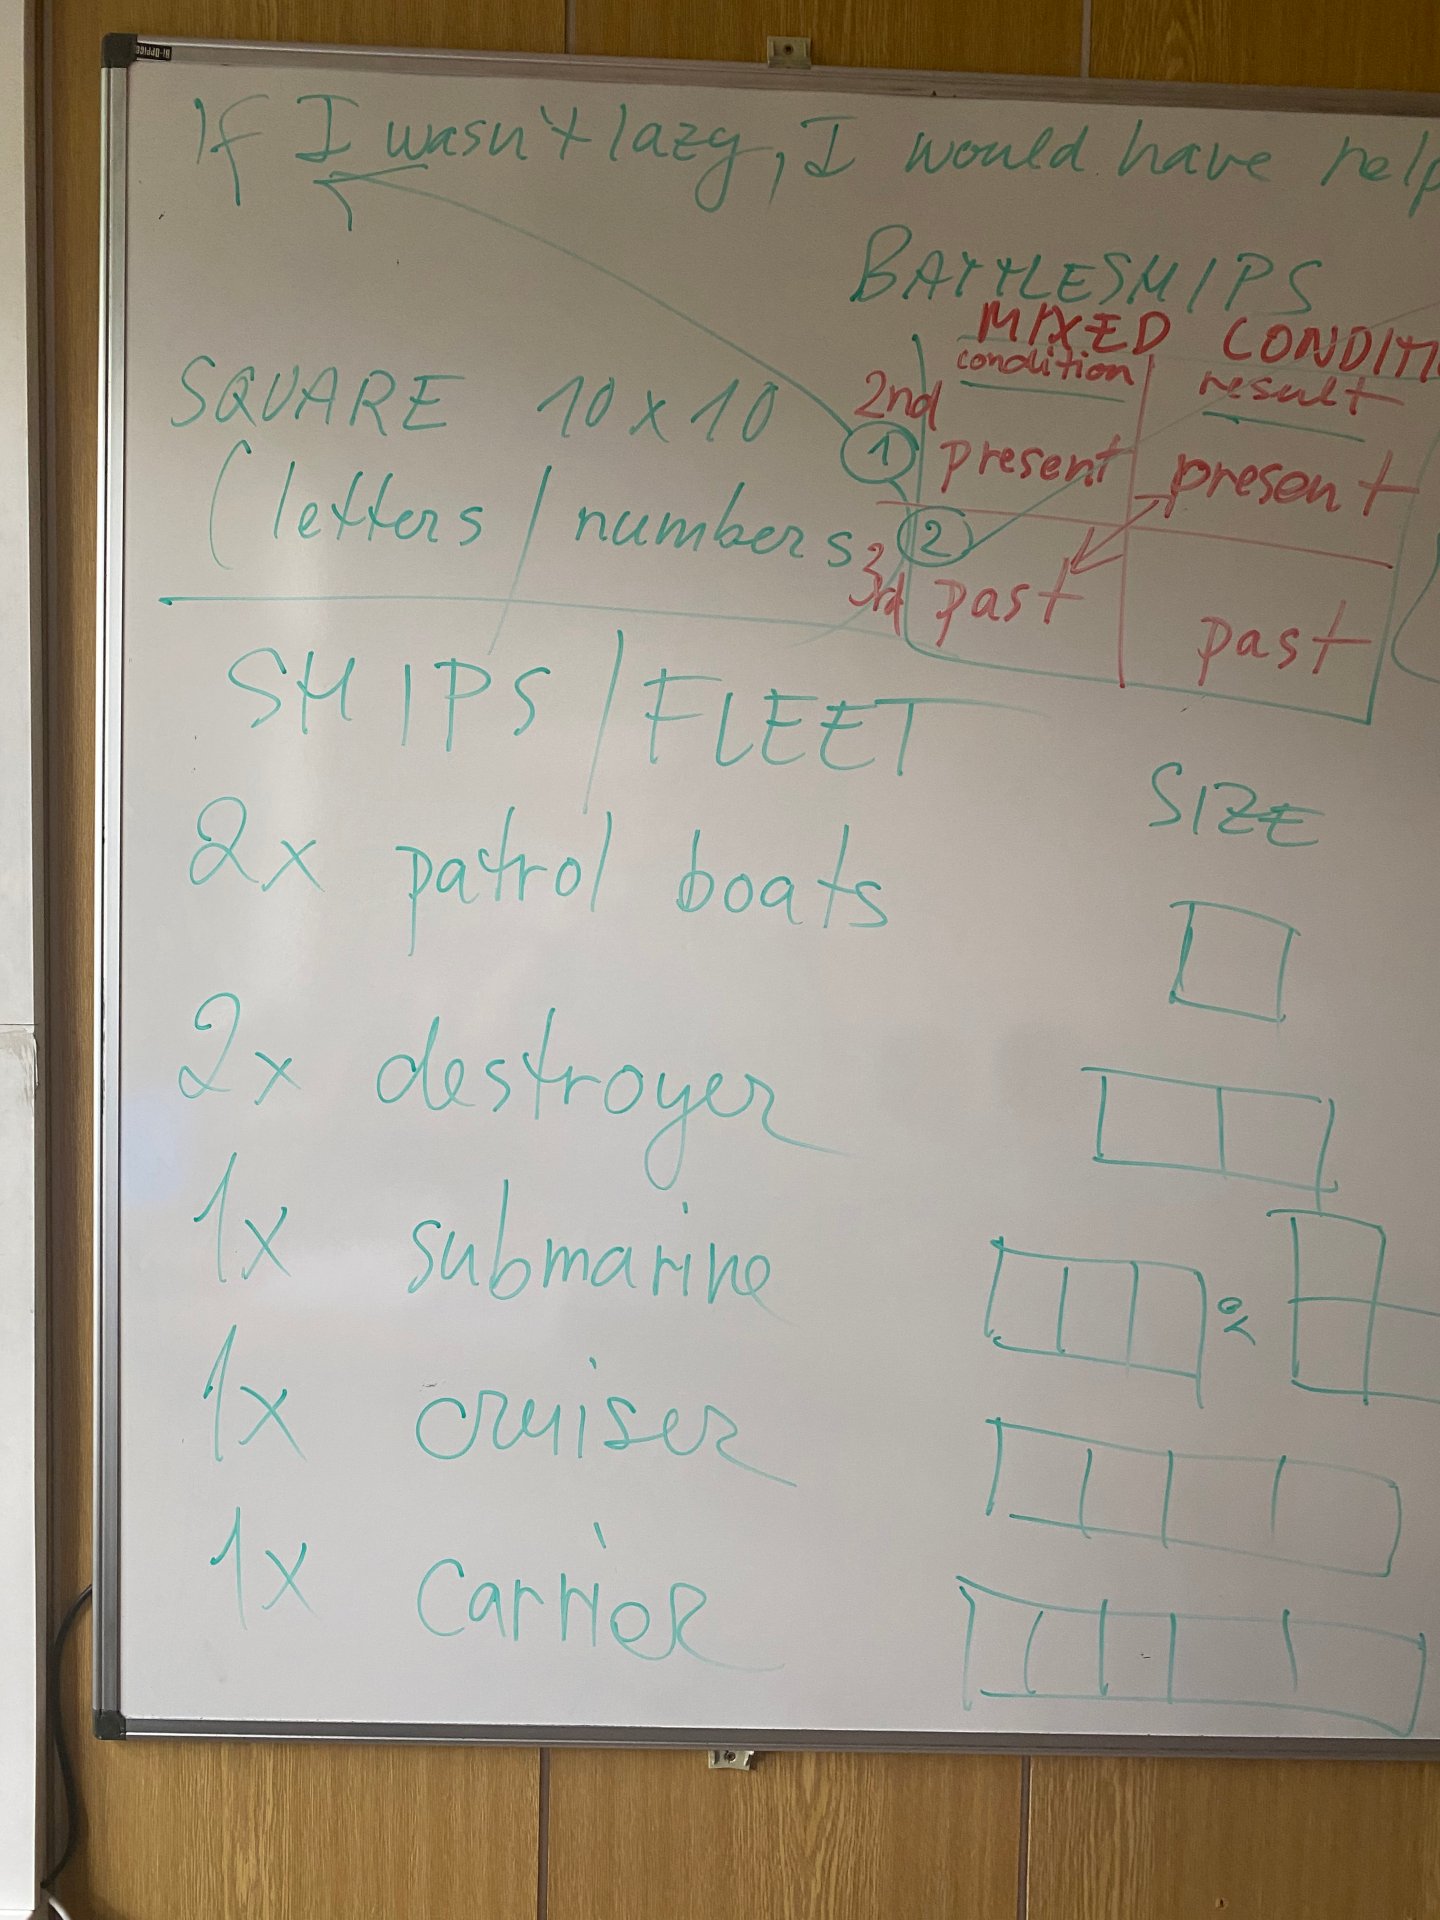 If I wasn't lazy, I would have help
BATTLESHIPS
MIXED CONDITI
condition result
SQUARE 10 x 10
(letters / numbers
2nd 1 present present
2
3rd past past
SHIPS / FLEET
SIZE
2x patrol boats
2x destroyer
1x submarine
or
1x cruiser
1x carrier